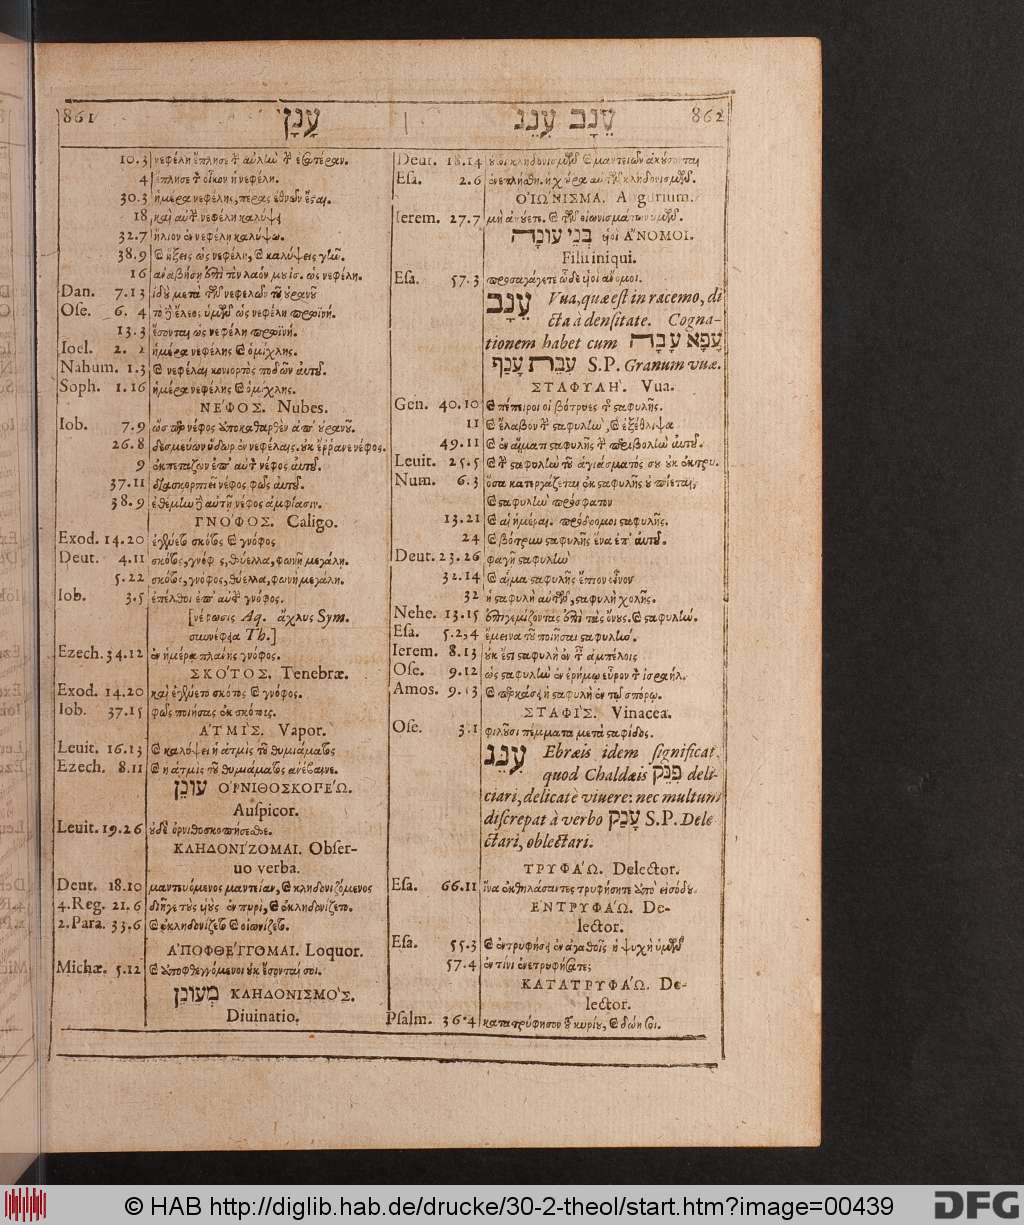 861 עָנָן
10.3 νεφέλη ἔπλησε τ αὐλὼ τ ἐσωτέραν.
4 ἔπλησε τ οἶκον ἡ νεφέλη.
30.3 ἡμέρα νεφέλης, πέρας ἐθνῶν ἔσαι.
18 καὶ αὐτ νεφέλη καλύψ
32.7 ἥλιον ἐν νεφέλῃ καλύψω.
38.9 ὡς νεφέλη, καλύψεις
16 ἀναβήσῃ τὸν λαόν μου ἰσ. ὡς νεφέλη.
Dan. 7.13 ἰδοὺ μετὰ τῶν νεφελῶν τοῦ οὐρανοῦ
Ose. 6. 4 ἔλεος ὑμῶν ὡς νεφέλη πρωϊνή.
13.3 ἔσονται ὡς νεφέλη πρωϊνή.
Ioel. 2. 2 ἡμέρα νεφέλης καὶ ὁμίχλης.
Nahum. 1.3 καὶ νεφέλαι κονιορτὸς ποδῶν αὐτοῦ.
Soph. 1.16 ἡμέρα νεφέλης καὶ ὁμίχλης.
ΝΕ'ΦΟΣ. Nubes.
Iob. 7.9 νέφος ἀποκαθαρθὲν ἀπ' οὐρανοῦ.
26.8 δεσμεύων ὕδωρ ἐν νεφέλαις. οὐκ ἐρράγη νέφος.
9 ἐκπετάζων ἐπ' αὐτ νέφος αὐτοῦ.
37.11 διασκορπιεῖ νέφος φῶς αὐτοῦ.
38.9 ἐθέμλω αὐτῇ νέφος ἀμφίασιν.
ΓΝΟ'ΦΟΣ. Caligo.
Exod. 14.20 σκότος καὶ γνόφος
Deut. 4.11 σκότος, γνόφ ς, θύελλα, φωνὴ μεγάλη.
5.22 σκότος, γνόφος, θύελλα, φωνὴ μεγάλη.
Iob. 3.5 ἐπέλθοι ἐπ' αὐτ γνόφος.
[νέφωσις Aq. ἄχλυς Sym.
συννέφεα Th.]
Ezech. 34.12 ἐν ἡμέρᾳ γνόφος.
ΣΚΟ'ΤΟΣ. Tenebræ.
Exod. 14.20 καὶ ἐγένετο σκότος καὶ γνόφος.
Iob. 37.15 φῶς ποιήσας ἐκ σκότους.
ΑΤΜΙ'Σ. Vapor.
Leuit. 16.13 καὶ καλύψει ἡ ἀτμὶς τοῦ θυμιάματος
Ezech. 8.11 καὶ ἡ ἀτμὶς τοῦ θυμιάματος ἀνέβαινε.
עוֹנֵן ΟΡΝΙΘΟΣΚΟΠΕ'Ω.
Auspicor.
Leuit. 19.26 οὐδὲ ὀρνιθοσκοπήσεσθε.
ΚΛΗΔΟΝΙ'ΖΟΜΑΙ. Obser-
uo verba.
Deut. 18.10 μαντευόμενος μαντείαν, καὶ κληδονιζόμενος
4.Reg. 21.6 διῆγε τοὺς υἱοὺς ἐν πυρὶ, καὶ ἐκληδονίζετο.
2.Para. 33.6 καὶ ἐκληδονίζετο καὶ οἰωνίζετο.
ΑΠΟΦΘΕ'ΓΓΟΜΑΙ. Loquor.
Michæ. 5.12 καὶ ἀποφθεγγόμενοι οὐκ ἔσονταί σοι.
מְעוֹנֵן ΚΛΗΔΟΝΙΣΜΟ'Σ.
Diuinatio.
עֵנָב עִנֵּג 862
Deut. 18.14 κληδονισμῶν καὶ μαντειῶν ἀκούσονται
Esa. 2.6 ἐνεπλήσθη. ἡ χώρα αὐτῶν κληδονισμῶν.
ΟΙΩ'ΝΙΣΜΑ. Augurium.
Ierem. 27.7 μὴ ἀκούετε. καὶ τῶν οἰωνισμάτων ὑμῶν.
בְּנֵי עוֹנָה υἱοὶ Α'ΝΟΜΟΙ.
Filii iniqui.
Esa. 57.3 προσαγάγετε ὧδε υἱοὶ ἄνομοι.
עֵנָב Vua, quæ est in racemo, di
cta à densitate. Cogna-
tionem habet cum עָבָה עָפָא
עָנָף עֵבֶת S.P. Granum vuæ.
ΣΤΑΦΥΛΗ'. Vua.
Gen. 40.10 καὶ πέπειροι οἱ βότρυες τ σαφυλῆς.
11 καὶ ἔλαβον τ σαφυλλὼ, καὶ ἐξέθλιψα
49.11 καὶ ἐν αἵματι σαφυλῆς τ περιβολλὼ αὐτοῦ.
Leuit. 25.5 καὶ τ σαφυλλὼ τοῦ ἁγιάσματός σου οὐκ ἐκτρυ.
Num. 6.3 ὅσα κατεργάζεται ἐκ σαφυλῆς οὐ πίεται,
καὶ σαφυλλὼ πρόσφατον
13.21 καὶ αἱ ἡμέραι πρόδρομοι σαφυλῆς.
24 καὶ βότρυω σαφυλῆς ἕνα ἐπ' αὐτοῦ.
Deut. 23.26 φαγῇ σαφυλλὼ
32.14 καὶ αἷμα σαφυλῆς ἔπιον οἶνον
32 ἡ σαφυλὴ αὐτῶν, σαφυλὴ χολῆς.
Nehe. 13.15 ἐπιγεμίζοντας ἐπὶ τοὺς ὄνους. καὶ σαφυλλώ.
Esa. 5.2,4 ἔμεινα τοῦ ποιῆσαι σαφυλλώ.
Ierem. 8.13 οὐκ ἔστι σαφυλὴ ἐν τ ἀμπέλοις
Ose. 9.12 ὡς σαφυλλὼ ἐν ἐρήμῳ εὗρον τ ἰσραήλ.
Amos. 9.13 ἡ σαφυλὴ ἐν τῷ σπόρῳ.
ΣΤΑΦΙ'Σ. Vinacea.
Ose. 3.1 φιλοῦσι πέμματα μετὰ σαφίδος.
עִנֵּג Ebræis idem significat.
quod Chaldæis פַּנֵּק deli-
ciari, delicatè viuere: nec multum
discrepat à verbo עָנַק S.P. Dele
ctari, oblectari.
ΤΡΥΦΑ'Ω. Delector.
Esa. 66.11 ἵνα ἐκθηλάσαντες τρυφήσητε ἀπὸ εἰσόδου.
ΕΝΤΡΥΦΑ'Ω. De-
lector.
Esa. 55.3 καὶ ἐντρυφήσει ἐν ἀγαθοῖς ἡ ψυχὴ ὑμῶν
57.4 ἐν τίνι ἐνετρυφήσατε;
ΚΑΤΑΤΡΥΦΑ'Ω. De-
lector.
Psalm. 36.4 κατατρύφησον τ κυρίου, καὶ δώη σοι.
© HAB http://diglib.hab.de/drucke/30-2-theol/start.htm?image=00439
DFG